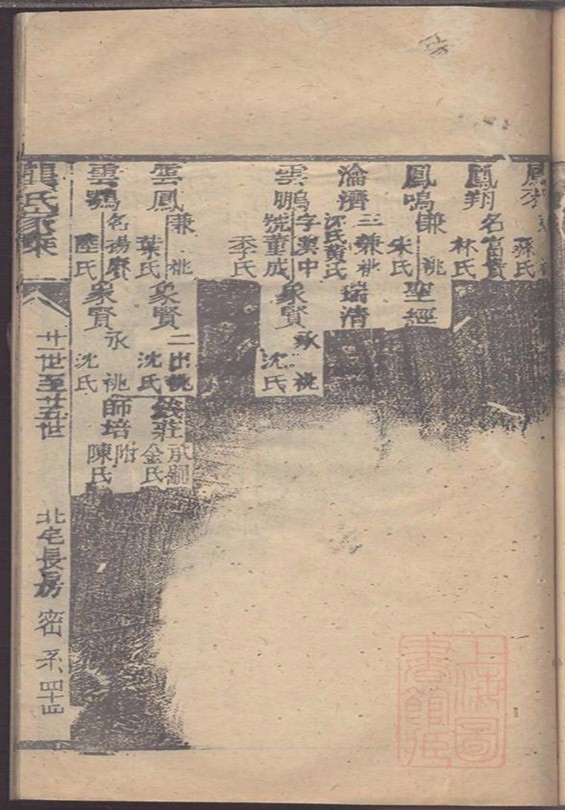 鳳
孫氏
鳳翔
名富貴
林氏
鳳鳴
兼祧
朱氏
聖經
淪濟
三兼祧
沈氏黃氏
瑞清
雲鵬
字漢中
董成
季氏
象賢
承祧
沈氏
雲鳳
兼祧
葉氏
象賢
二出祧
沈氏
莊
承嗣
金氏
雲鶚
名揚賡
陸氏
象賢
承祧
沈氏
師培
附
陳氏
龔氏家乘
廿一世至廿五世
北宅長房
密系四十四
上海圖書館藏